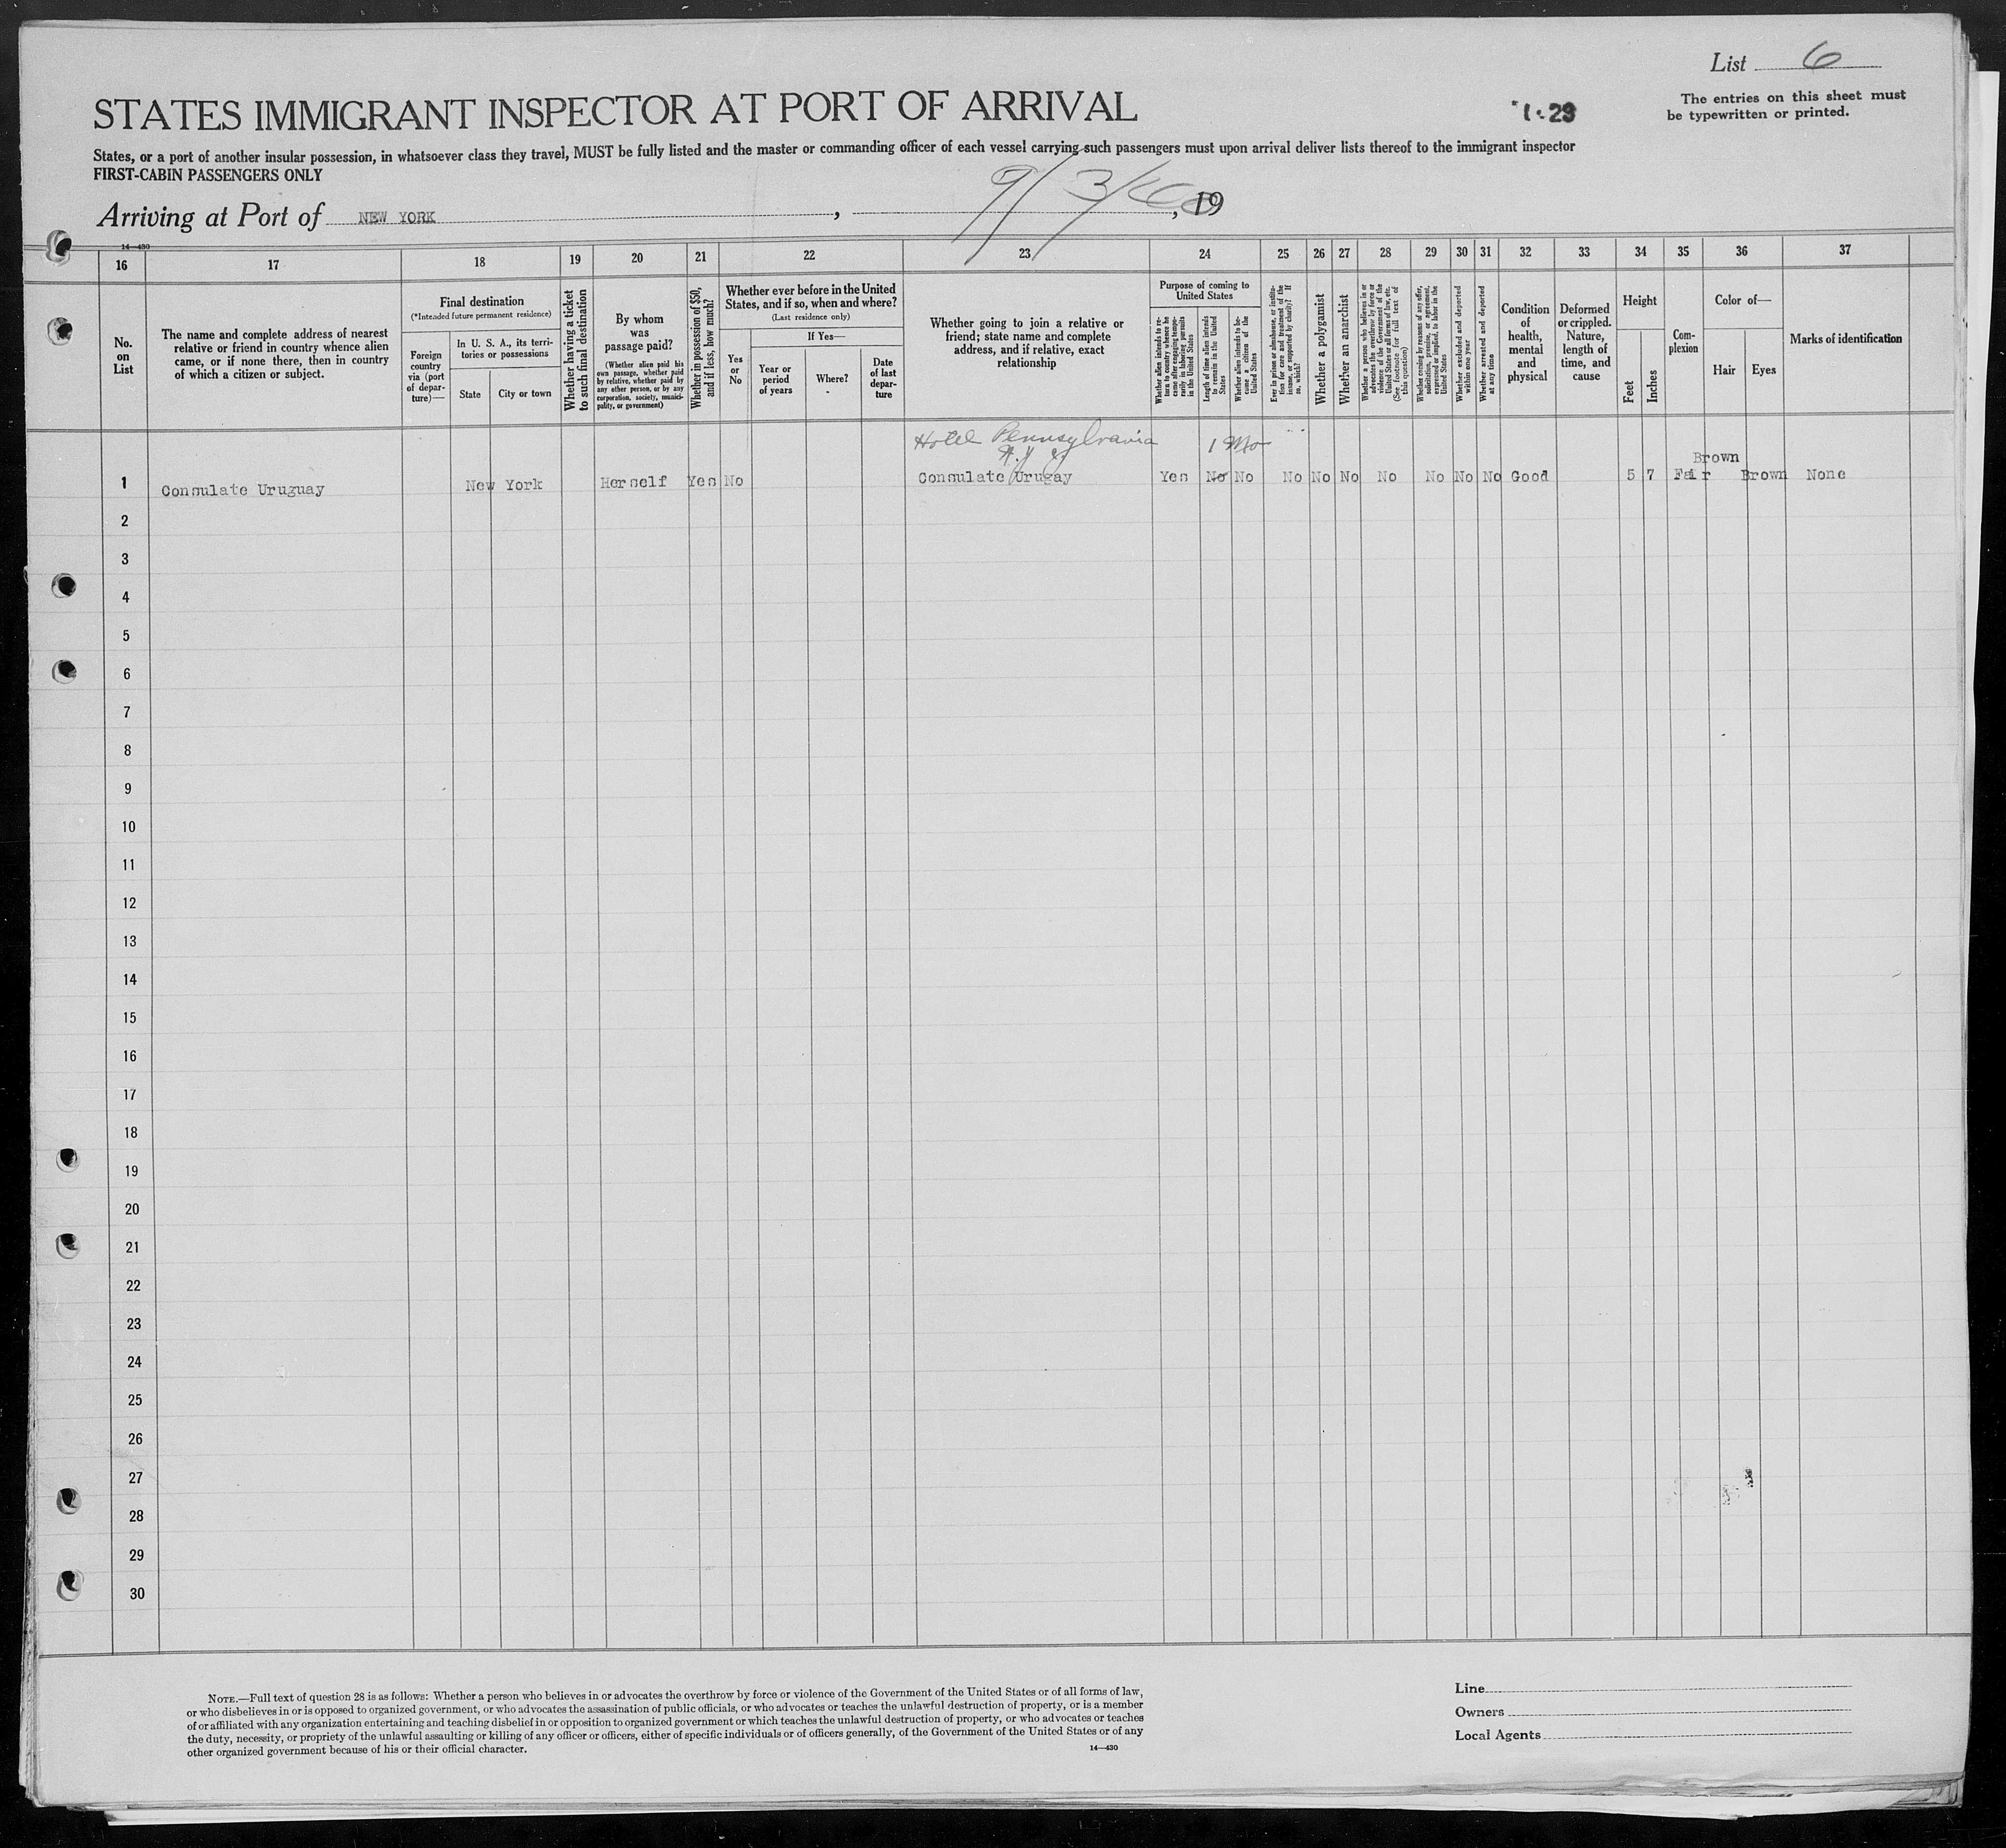 List 6
STATES IMMIGRANT INSPECTOR AT PORT OF ARRIVAL
1·29
The entries on this sheet must
be typewritten or printed.
States, or a port of another insular possession, in whatsoever class they travel, MUST be fully listed and the master or commanding officer of each vessel carrying such passengers must upon arrival deliver lists thereof to the immigrant inspector
FIRST-CABIN PASSENGERS ONLY
Arriving at Port of NEW YORK, 9/3/46, 19
14—430
16 17 18 19 20 21 22 23 24 25 26 27 28 29 30 31 32 33 34 35 36 37
No.
on
List
The name and complete address of nearest
relative or friend in country whence alien
came, or if none there, then in country
of which a citizen or subject.
Final destination
(*Intended future permanent residence)
Foreign
country
via (port
of depar-
ture)—
In U. S. A., its terri-
tories or possessions
State
City or town
Whether having a ticket
to such final destination
By whom
was
passage paid?
(Whether alien paid his
own passage, whether paid
by relative, whether paid by
any other person, or by any
corporation, society, munici-
pality, or government)
Whether in possession of $50,
and if less, how much?
Whether ever before in the United
States, and if so, when and where?
(Last residence only)
Yes
or
No
If Yes—
Year or
period
of years
Where?
Date
of last
depar-
ture
Whether going to join a relative or
friend; state name and complete
address, and if relative, exact
relationship
Purpose of coming to
United States
Whether alien intends to re-
turn to country whence he
came after engaging tempo-
rarily in laboring pursuits
in the United States
Length of time alien intends
to remain in the United
States
Whether alien intends to be-
come a citizen of the
United States
Ever in prison or almshouse, or institu-
tion for care and treatment of the
insane, or supported by charity? If
so, which?
Whether a polygamist
Whether an anarchist
Whether a person who believes in or
advocates the overthrow by force or
violence of the Government of the
United States or all forms of law, etc.
(See footnote for full text of
this question)
Whether coming by reasons of any offer,
solicitation, promise, or agreement,
expressed or implied, to labor in the
United States
Whether excluded and deported
within one year
Whether arrested and deported
at any time
Condition
of
health,
mental
and
physical
Deformed
or crippled.
Nature,
length of
time, and
cause
Height
Feet
Inches
Com-
plexion
Color of—
Hair
Eyes
Marks of identification
Hotel Pennsylvania 1 Mo
N. Y. C.
Brown
1 Consulate Uruguay New York Herself Yes No Consulate Urugay Yes No No No No No No No No No Good 5 7 Fair Brown None
2
3
4
5
6
7
8
9
10
11
12
13
14
15
16
17
18
19
20
21
22
23
24
25
26
27
28
29
30
NOTE.—Full text of question 28 is as follows: Whether a person who believes in or advocates the overthrow by force or violence of the Government of the United States or of all forms of law,
or who disbelieves in or is opposed to organized government, or who advocates the assassination of public officials, or who advocates or teaches the unlawful destruction of property, or is a member
of or affiliated with any organization entertaining and teaching disbelief in or opposition to organized government or which teaches the unlawful destruction of property, or who advocates or teaches
the duty, necessity, or propriety of the unlawful assaulting or killing of any officer or officers, either of specific individuals or of officers generally, of the Government of the United States or of any
other organized government because of his or their official character.
14—430
Line
Owners
Local Agents